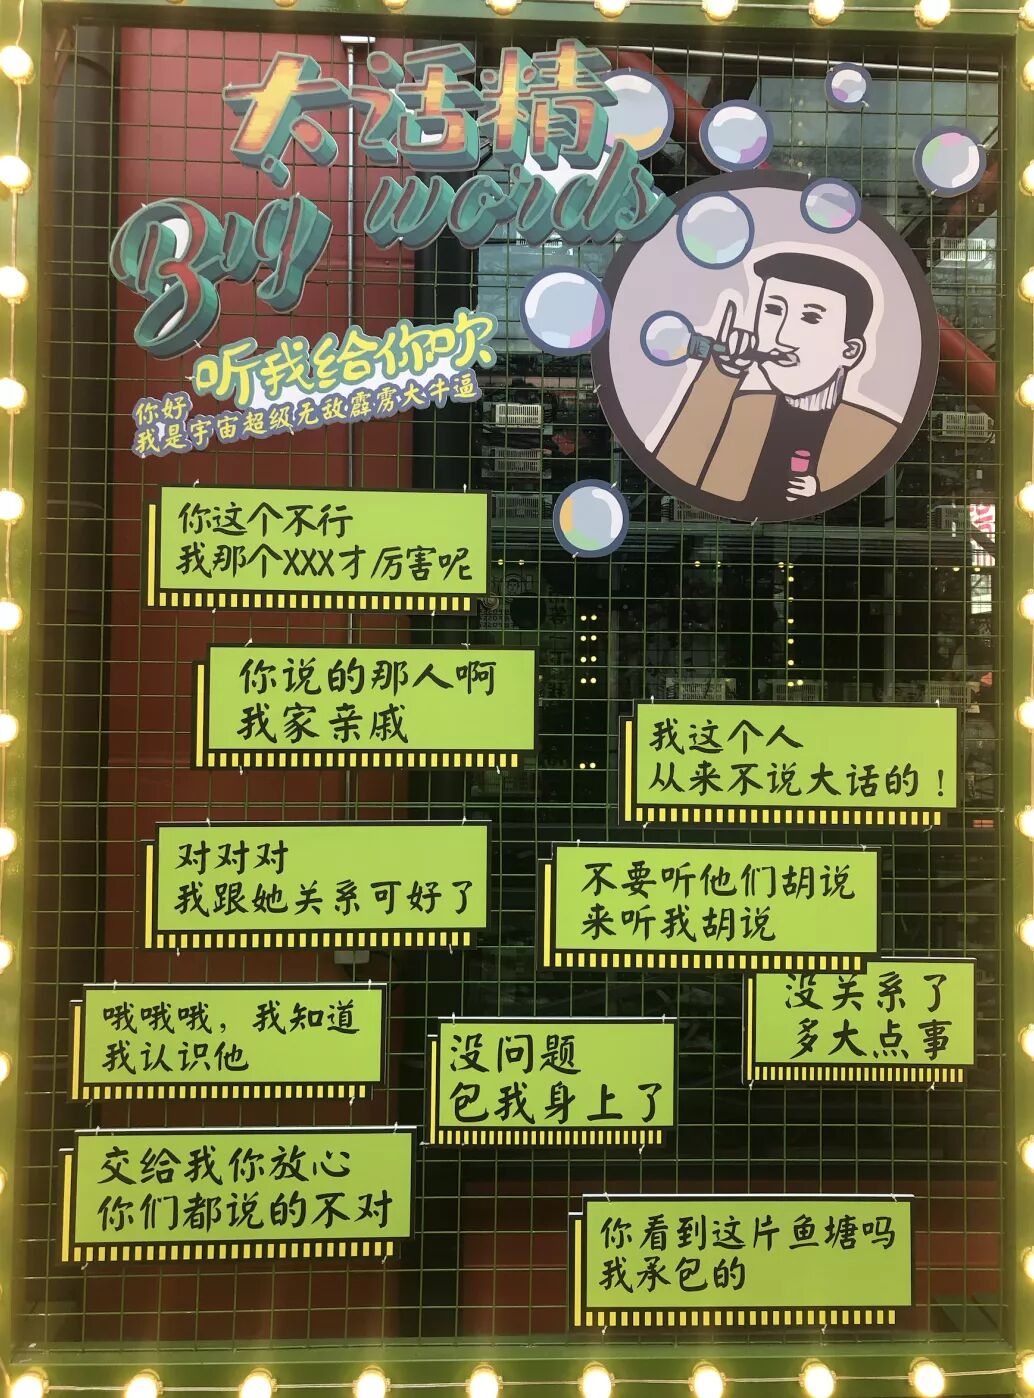 大话精
Big words
听我给你吹
你好
我是宇宙超级无敌霹雳大牛逼
你这个不行
我那个XXX才厉害呢
你说的那人啊
我家亲戚
我这个人
从来不说大话的！
对对对
我跟她关系可好了
不要听他们胡说
来听我胡说
哦哦哦，我知道
我认识他
没问题
包我身上了
没关系了
多大点事
交给我你放心
你们都说的不对
你看到这片鱼塘吗
我承包的